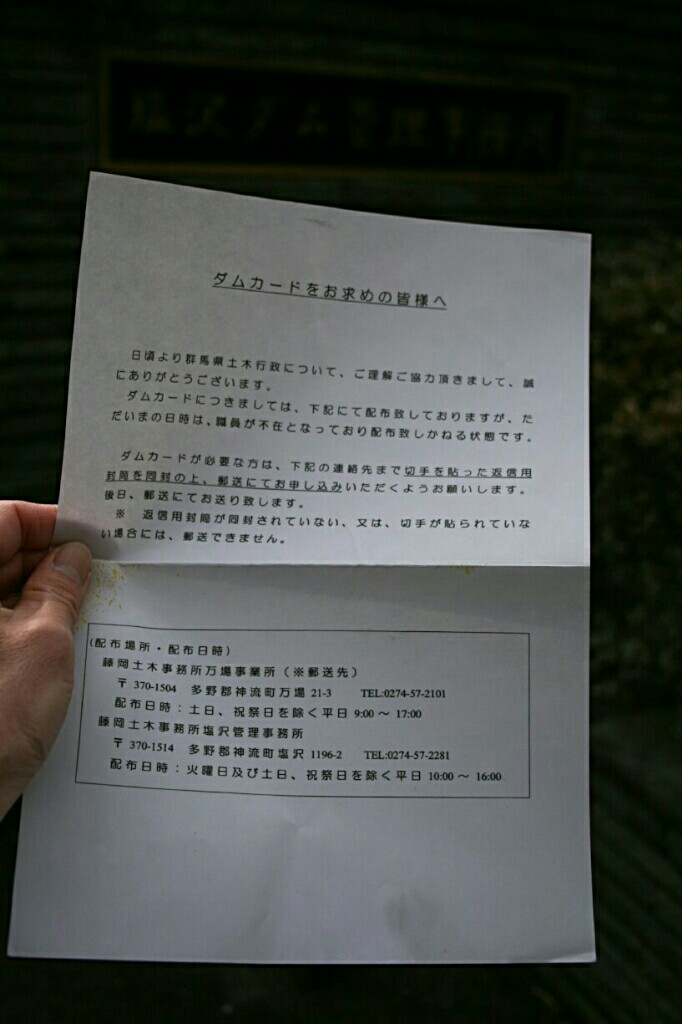 塩沢ダム管理事務所
ダムカードをお求めの皆様へ
日頃より群馬県土木行政について、ご理解ご協力頂きまして、誠
にありがとうございます。
ダムカードにつきましては、下記にて配布致しておりますが、た
だいまの日時は、職員が不在となっており配布致しかねる状態です。
ダムカードが必要な方は、下記の連絡先まで切手を貼った返信用
封筒を同封の上、郵送にてお申し込みいただくようお願いします。
後日、郵送にてお送り致します。
※ 返信用封筒が同封されていない、又は、切手が貼られていな
い場合には、郵送できません。
(配布場所・配布日時)
藤岡土木事務所万場事業所(※郵送先)
〒370-1504 多野郡神流町万場 21-3 TEL:0274-57-2101
配布日時:土日、祝祭日を除く平日 9:00 ~ 17:00
藤岡土木事務所塩沢管理事務所
〒370-1514 多野郡神流町塩沢 1196-2 TEL:0274-57-2281
配布日時:火曜日及び土日、祝祭日を除く平日 10:00 ~ 16:00